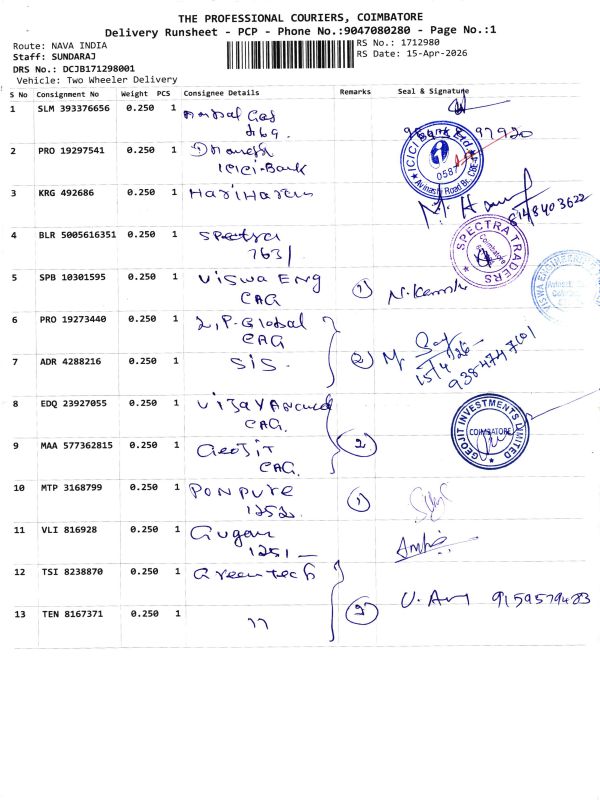 THE PROFESSIONAL COURIERS, COIMBATORE
Delivery Runsheet - PCP - Phone No.:9047080280 - Page No.:1
Route: NAVA INDIA
RS No.: 1712980
Staff: SUNDARAJ
RS Date: 15-Apr-2026
DRS No.: DCJB171298001
Vehicle: Two Wheeler Delivery
S No Consignment No Weight PCS Consignee Details Remarks Seal & Signature
1 SLM 393376656 0.250 1
2 PRO 19297541 0.250 1
ICICI-Bank
ICICI Bank Ltd.
0587
Avinashi Road Br. CBE-4
3 KRG 492686 0.250 1 Hariharan
8148403622
4 BLR 5005616351 0.250 1 Spectra
7631
SPECTRA TRADERS
Coimbatore
5 SPB 10301595 0.250 1 Viswa Eng
CAG
1
VISWA ENGINEERING
6 PRO 19273440 0.250 1 L.P. Global
CAG
7 ADR 4288216 0.250 1 SIS.
2
15/4/26
9384747601
8 EDQ 23927055 0.250 1 Vijay Advanced
CAG.
9 MAA 577362815 0.250 1 Geojit
CAG.
2
GEOJIT INVESTMENTS LIMITED
COIMBATORE
10 MTP 3168799 0.250 1 Ponpure
1252.
1
11 VLI 816928 0.250 1 Gugan
1251
12 TSI 8238870 0.250 1 Greentech
13 TEN 8167371 0.250 1 "
9159579483